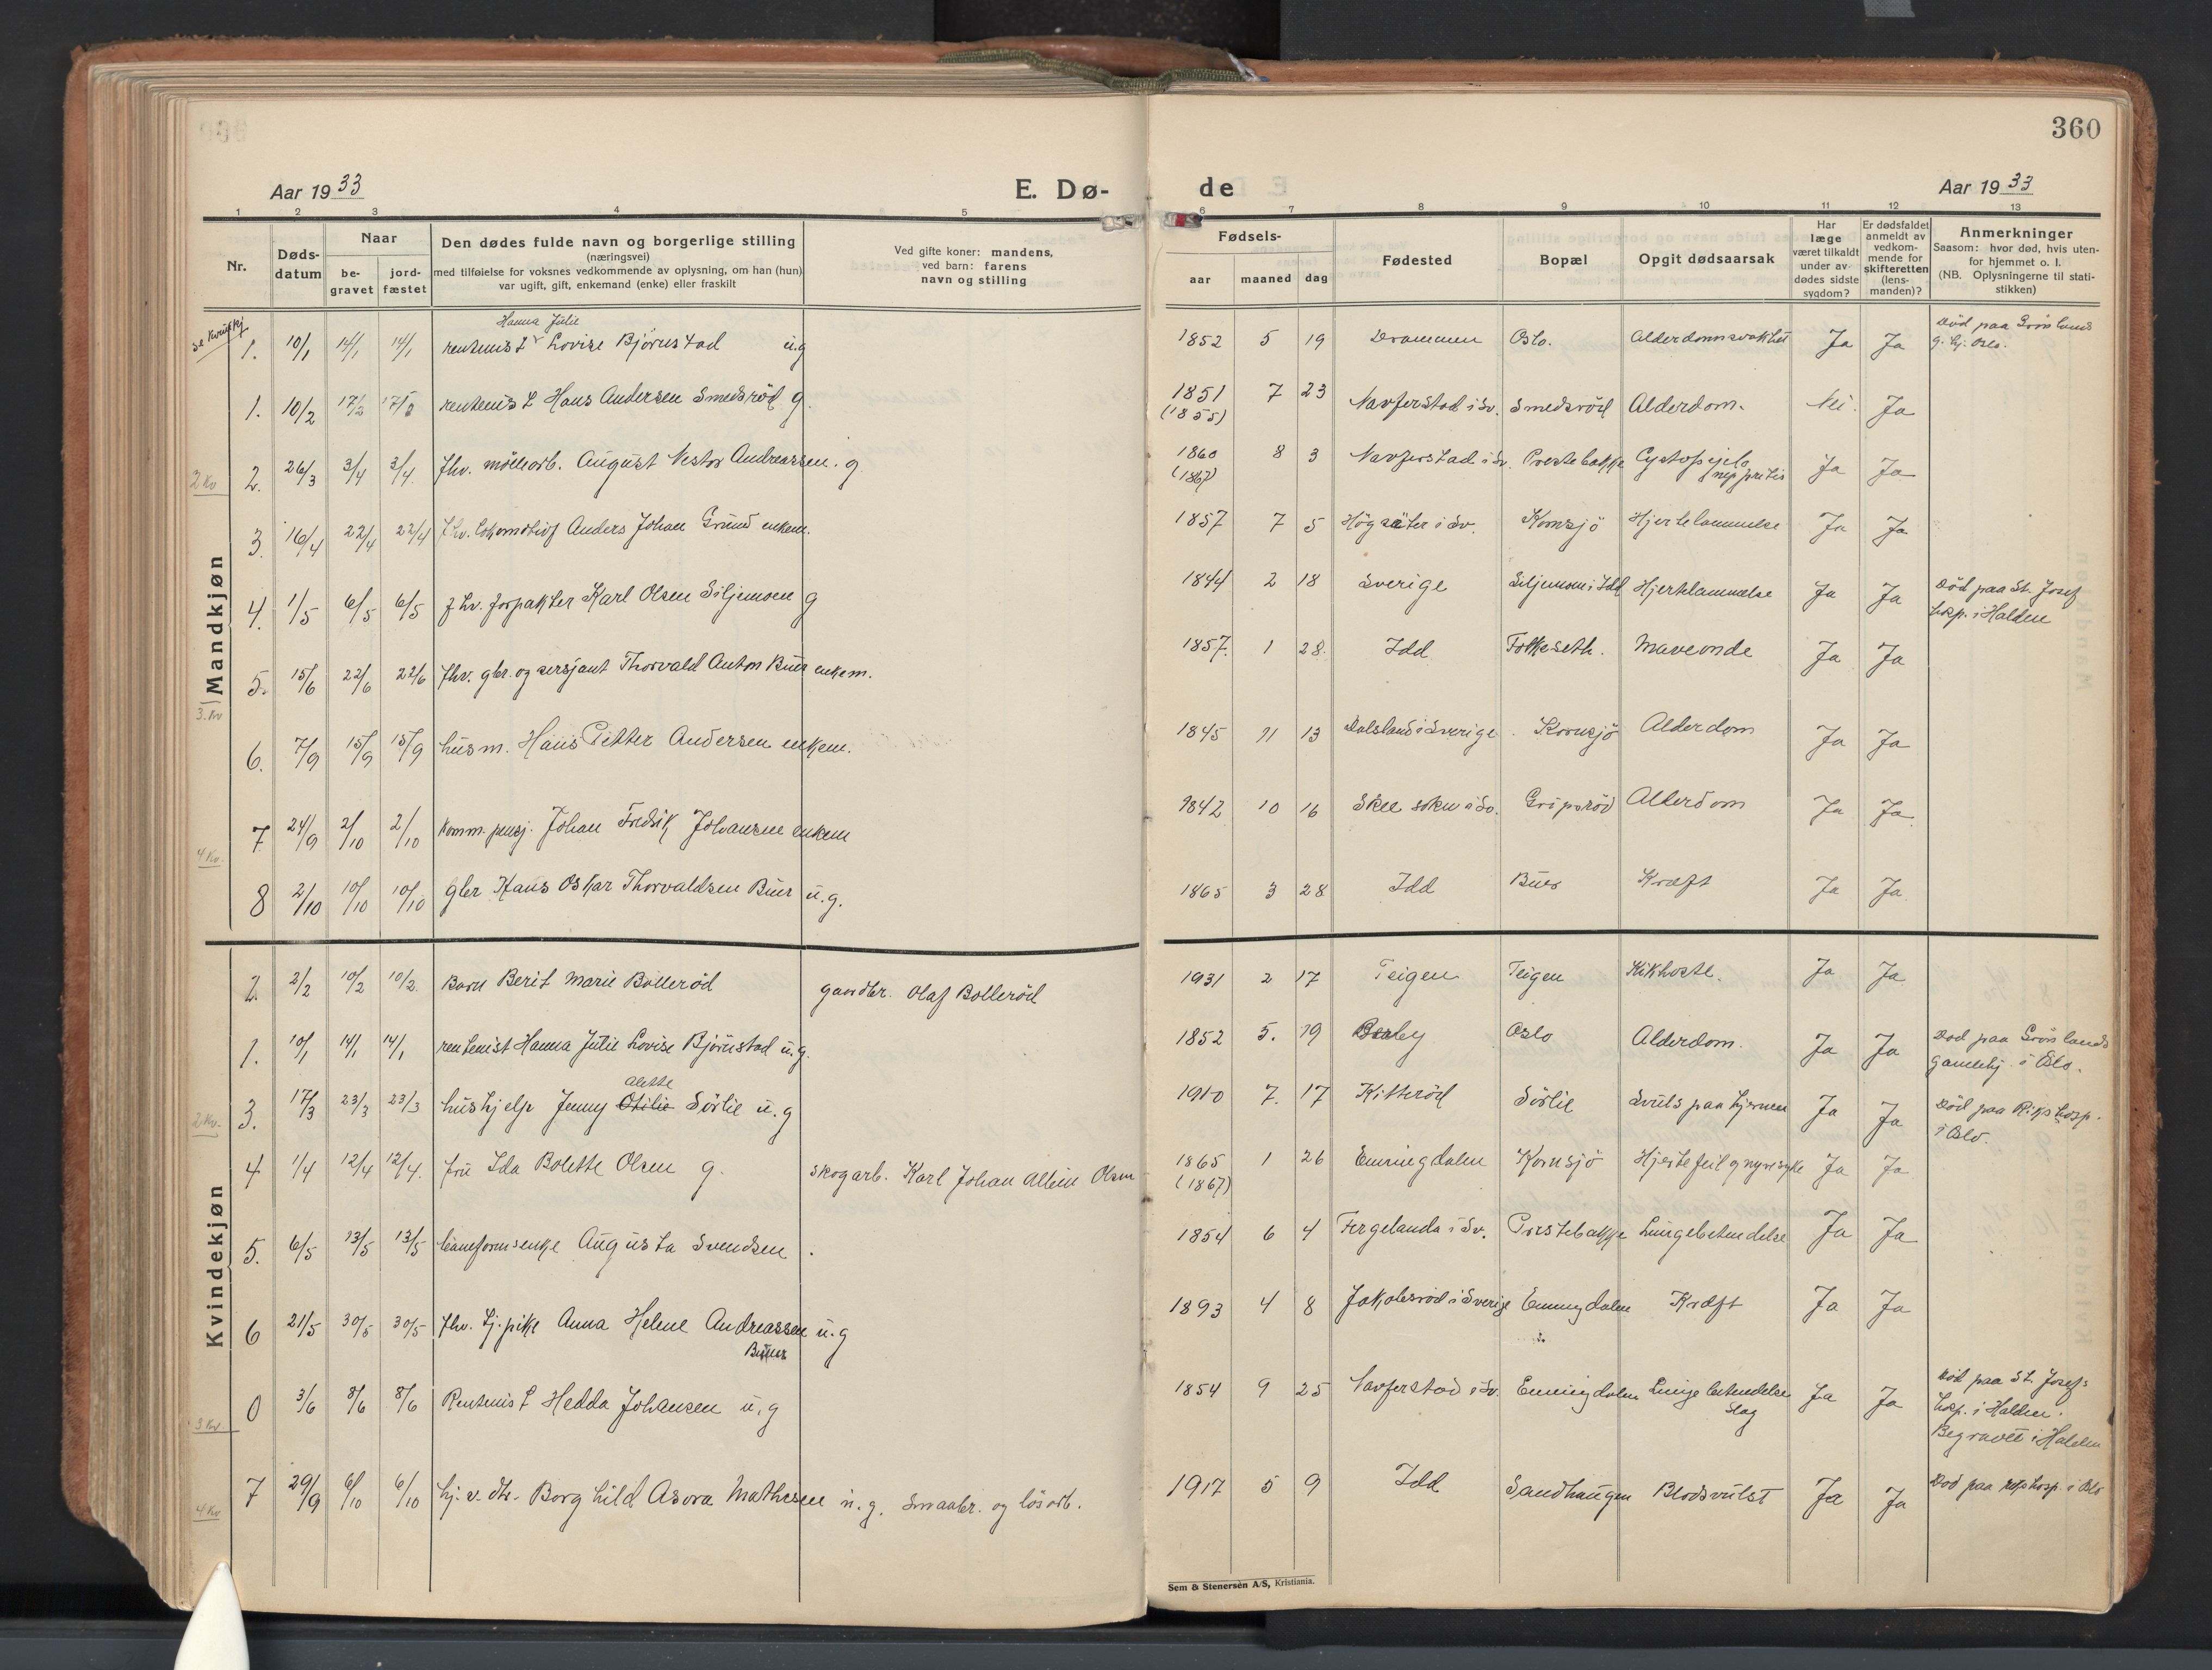 360
Aar 1933
E. Dø-
de
Aar 1933
1 2 3 4 5
6 7 8 9 10 11 12 13
Nr.
Døds-
datum
Naar
be-
gravet
jord-
fæstet
Den dødes fulde navn og borgerlige stilling
(næringsvei)
med tilføielse for voksnes vedkommende av oplysning, om han (hun)
var ugift, gift, enkemand (enke) eller fraskilt
Ved gifte koner: mandens,
ved barn: farens
navn og stilling
Fødsels-
aar maaned dag
Fødested
Bopæl
Opgit dødsaarsak
Har
læge
været tilkaldt
under av-
dødes sidste
sygdom?
Er dødsfaldet
anmeldt av
vedkom-
mende for
skifteretten
(lens-
manden)?
Anmerkninger
Saasom: hvor død, hvis uten-
for hjemmet o. l.
(NB. Oplysningerne til stati-
stikken)
Mandkjøn
se kvindkj
Hanna Julie
1. 10/1 14/1 14/1 rentenist Lovise Bjørnstad u.g 1852 5 19 Drammen Oslo. Alderdomsvakhet Ja Ja Död paa Grönlands
g. hj. Oslo.
1. 10/2 17/2 17/2 rentenist Hans Andersen Smedsröd g. 1851 7 23 Navferstad i Sv. Smedsröd Alderdom. Nei. Ja
(1855)
2 Kv
2. 26/3 3/4 3/4 fhv. möllearb. August Nestor Andreassen. g. 1860 8 3 Navferstad i Sv. Prestebakke Cystopyelo Ja Ja
(1867) nephritis
3. 16/4 22/4 22/4 fhv. lokomotivf Anders Johan Grund enkem. 1857 7 5 Högsäter i Sv. Kornsjö Hjertelammelse Ja Ja
4. 1/5 6/5 6/5 fhv. forpakter Karl Olsen Siljemoen g 1844 2 18 Sverige Siljemoen i Idd Hjertelammelse Ja Ja Död paa St. Josef
hosp. i Halden
5. 15/6 22/6 22/6 fhv. gbr. og sersjant Thorvald Anton Buer enkem. 1857. 1 28. Idd Folkeseth. Maveonde Ja Ja
3. Kv
6. 7/9 15/9 15/9 husm. Hans Petter Andersen enkem. 1845 11 13 Dalsland i Sverige. Kornsjö Alderdom Ja Ja
7 24/9 2/10 2/10 Komm. pensj. Johan Fredrik Johansen enkem 1842 10 16 Skee sokn i Sv. Gripsröd Alderdom Ja Ja
4 Kv.
8 2/10 10/10 10/10 gbr Hans Oskar Thorvaldsen Buer u.g. 1865 3 28 Idd Buer Kræft Ja Ja
Kvindekjøn
2. 2/2 10/2 10/2. Barn Berit Marie Bollerød gardbr. Olaf Bollerød 1931 2 17 Teigen Teigen Kikhoste. Ja Ja
1. 10/1 14/1 14/1 rentenist Hanna Julie Lovise Bjørnstad u.g. 1852 5. 19 Berby Oslo Alderdom. Ja Ja Död paa Grönlands
gamlehj. i Oslo.
Alette
2 Kv.
3. 17/3 23/3 23/3 hushjelp Jenny Otilie Sörlie u.g 1910 7. 17 Kitteröd Sörlie Svulst paa hjernen Ja Ja Död paa Rikshosp.
i Oslo.
4 1/4 12/4 12/4. fru Ida Bolette Olsen g. skogarb. Karl Johan Albin Olsen 1865 1 26 Enningdalen Kornsjö Hjertefeil og nyresyke Ja Ja
(1867)
5. 6/5 13/5 13/5 baneformsenke Augusta Svendsen. 1854 6 4 Fergelanda i Sv. Prestebakke Lungebetendelse Ja Ja
6 21/5 30/5 30/5 fhv. tj. pike Anna Helene Andreassen u.g 1893 4 8 Jakobsröd i Sverige Enningdalen Kræft Ja Ja
Buer
0 3/6 8/6 8/6 Rentenist Hedda Johansen u.g 1854 9 25 Navferstad i Sv. Enningdalen Lungebetendelse Ja Ja Död paa St. Josefs
slag hosp. i Halden.
Begravet i Halden
3 Kv
7 29/9 6/10 6/10 hj. v. dtr. Borghild Asora Mathisen u.g. Smaabr. og lösarb. 1917 5 9 Idd Sandhaugen Blodsvulst Ja Ja Död paa rikshosp. i Oslo
4 Kv
Sem & Stenersen A/S, Kristiania.